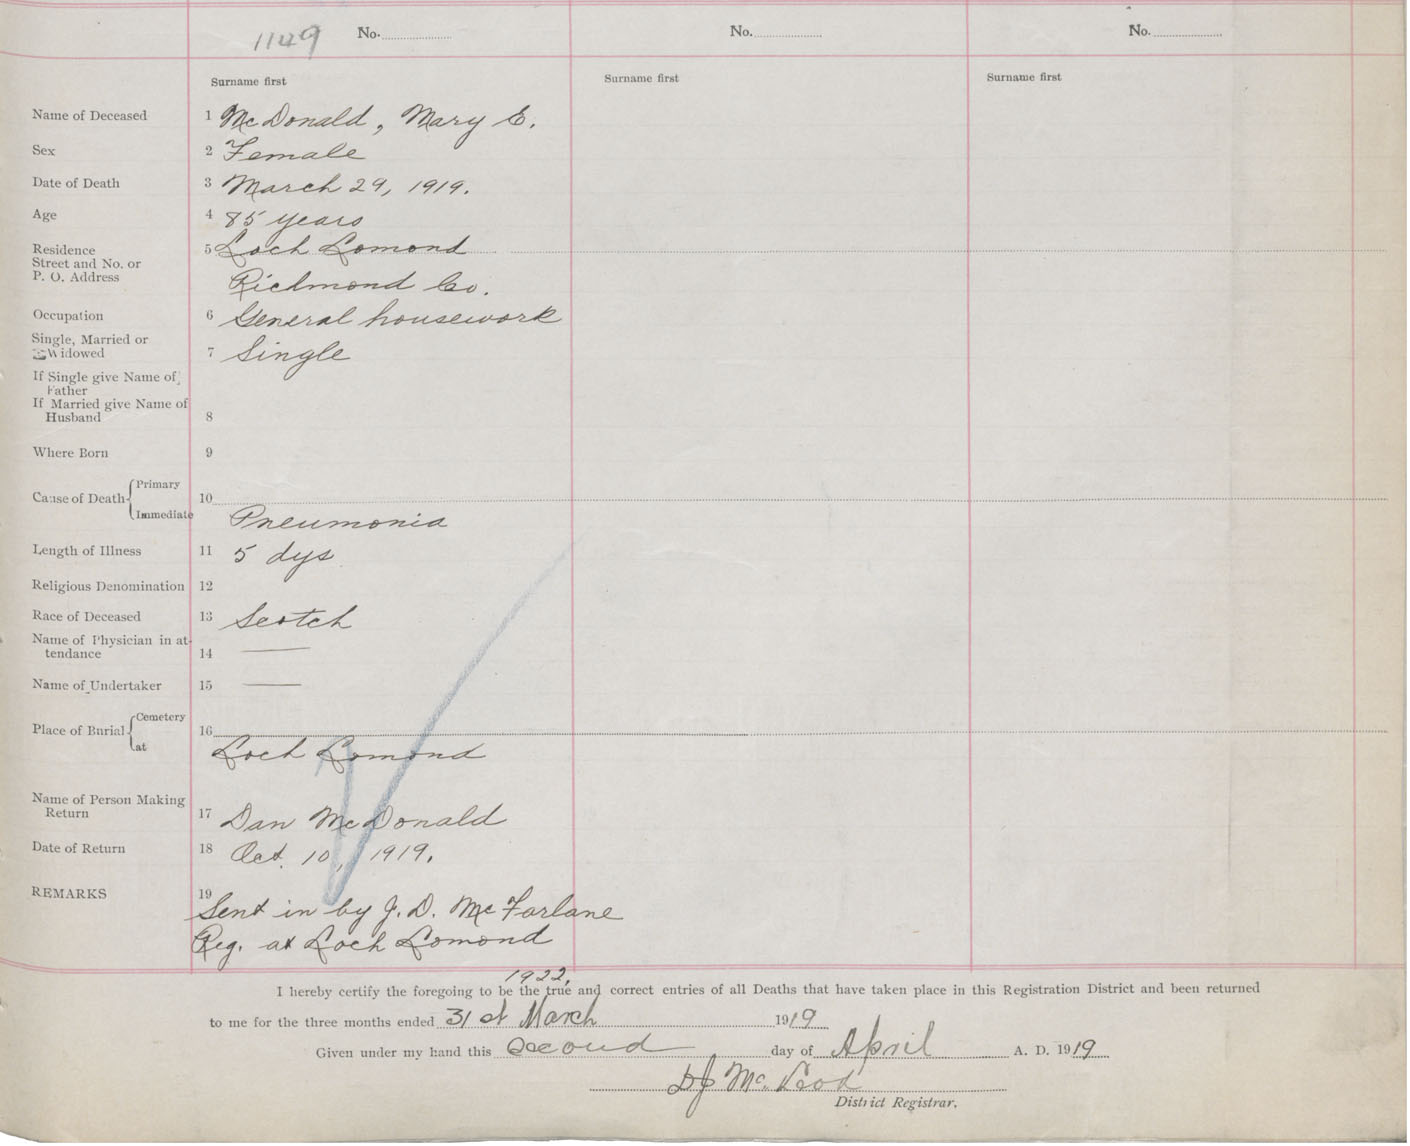 1149 No. No. No.
Surname first Surname first Surname first
Name of Deceased 1 McDonald, Mary E.
Sex 2 Female
Date of Death 3 March 29, 1919.
Age 4 85 years
Residence 5 Loch Lomond
Street and No. or
P. O. Address Richmond Co.
Occupation 6 General housework
Single, Married or
Widowed 7 Single
If Single give Name of
Father
If Married give Name of
Husband 8
Where Born 9
Primary
Cause of Death 10
Immediate Pneumonia
Length of Illness 11 5 dys
Religious Denomination 12
Race of Deceased 13 Scotch
Name of Physician in at-
tendance 14 —
Name of Undertaker 15 —
Cemetery
Place of Burial 16
at Loch Lomond
Name of Person Making
Return 17 Dan McDonald
Date of Return 18 Oct. 10, 1919.
REMARKS 19
Sent in by J. D. McFarlane
Reg. at Loch Lomond
1922,
I hereby certify the foregoing to be the true and correct entries of all Deaths that have taken place in this Registration District and been returned
to me for the three months ended 31st March 1919
Given under my hand this Second day of April A. D. 1919
DJ McLeod
District Registrar.